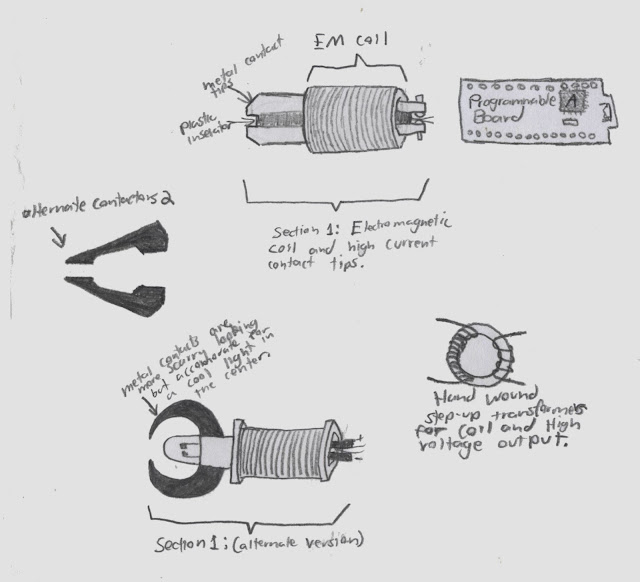 EM coil
metal contact
tips
plastic
inselator
Programmable
Board
A
Section 1: Electromagnetic
coil and high current
contact tips.
alternate contactors 2
metal contacts are
more scarry looking
but accomodate for
a cool light in
the center.
+
-
Section 1: (alternate version)
Hand wound
step-up transformers
for coil and High
voltage output.